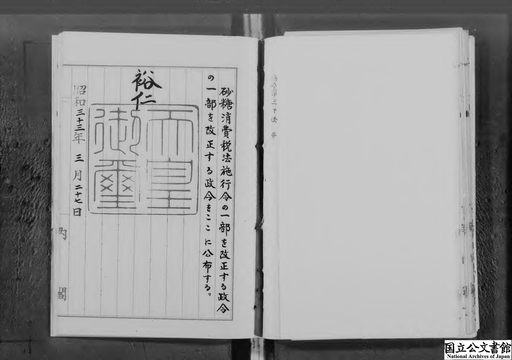 砂糖消費税法施行令の一部を改正する政令
の一部を改正する政令をここに公布する。
裕仁
天皇
御璽
昭和三十三年三月二十七日
内閣
国立公文書館
National Archives of Japan